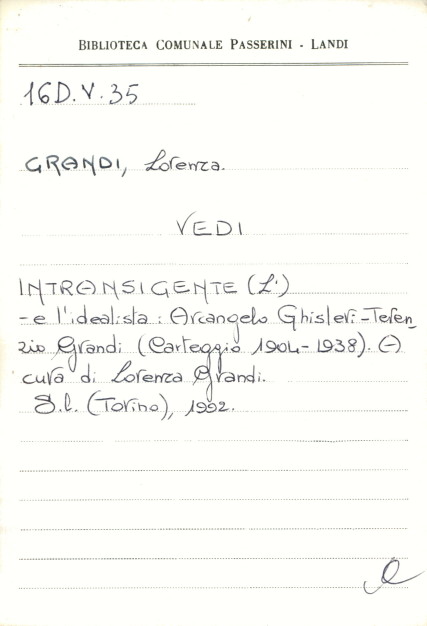 BIBLIOTECA COMUNALE PASSERINI - LANDI
16D.V.35
GRANDI, Lorenza.
VEDI
INTRANSIGENTE (L')
- e l'idealista : Arcangelo Ghisleri - Teren_
zio Grandi (Carteggio 1904-1938). A
cura di Lorenza Grandi.
S.l. (Torino), 1992.